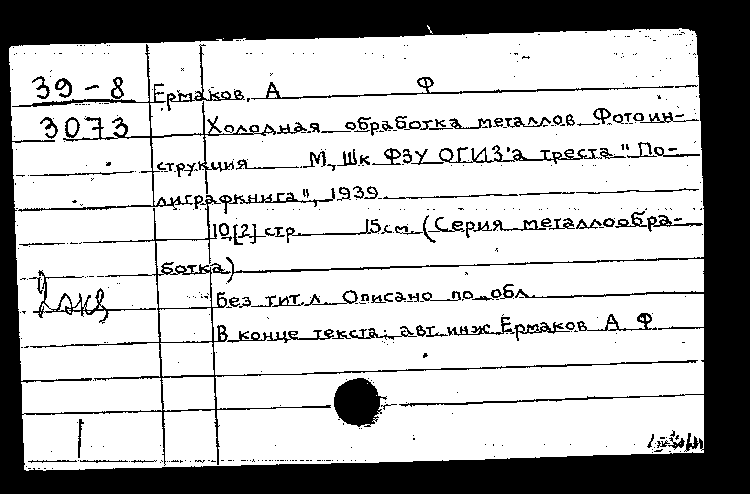 39-8
Ермаков, А Ф
3073
Холодная обработка металлов. Фотоин-
струкция М., Шк. ФЗУ ОГИЗ'а треста "По-
лиграфкнига", 1939
10,[2] стр. 15см. (Серия металлообра-
ботка)
Без тит. л. Описано по обл.
2 экз
В конце текста: авт. инж Ермаков А. Ф